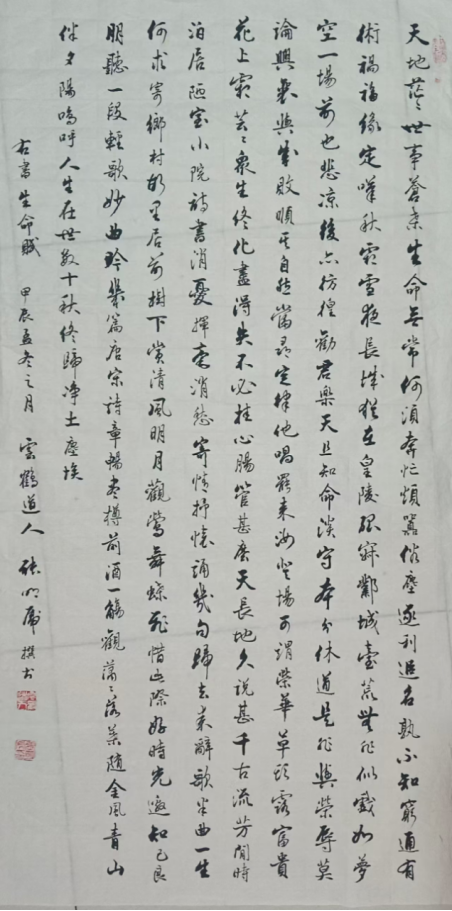 天地茫茫世事蒼桑生命無常何須奔忙煩囂俗塵逐利追名孰不知窮通有
術禍福緣定嘆秋霜雪夜長城猶在皇陵孤寂鄴城臺荒無非似戲如夢
空一場前也悲涼後亦彷徨勸君樂天且知命淡守本分休道是非與榮辱莫
論興衰與成敗順其自然當尋定律他唱罷來汝登場可謂榮華草頭露富貴
花上霜芸芸衆生終化盡得失不必挂心腸管甚麽天長地久說甚千古流芳閒時
泊居陋室小院詩書消憂揮毫消愁寄情抒懷誦幾句歸去來辭歌半曲一生
何求寄鄉村故里居前樹下賞清風明月觀鶯舞蝶飛惜此際好時光邀知己良
朋聽一段輕歌妙曲吟幾篇唐宋詩章暢盡樽前酒一觴觀蕭蕭落葉隨金風青山
伴夕陽嗚呼人生在世數十秋終歸淨土塵埃
右書生命賦 甲辰孟冬之月 雲鶴道人 張明虎 撰書